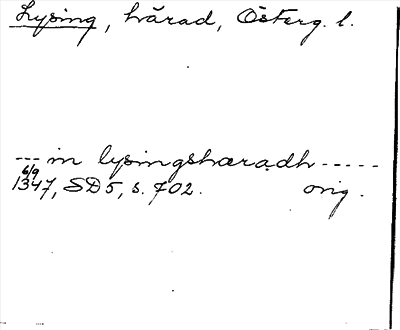 Lysing, härad, Österg. l.
--- in lysingshæradh -----
6/9
1347, SD 5, s. 702. orig.